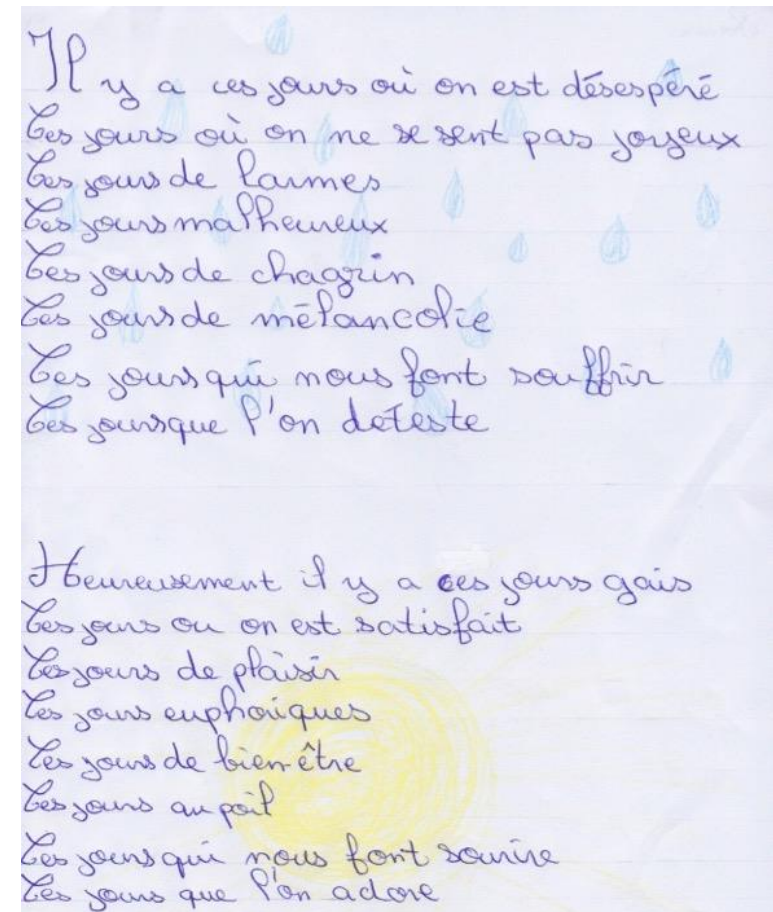 Il y a ces jours où on est désespéré
Ces jours où on ne se sent pas joyeux
Ces jours de larmes
Ces jours malheureux
Ces jours de chagrin
Ces jours de mélancolie
Ces jours qui nous font souffrir
Ces jours que l'on déteste
Heureusement il y a ces jours gais
Ces jours ou on est satisfait
Ces jours de plaisir
Ces jours euphoriques
Ces jours de bien-être
Ces jours au poil
Ces jours qui nous font sourire
Ces jours que l'on adore